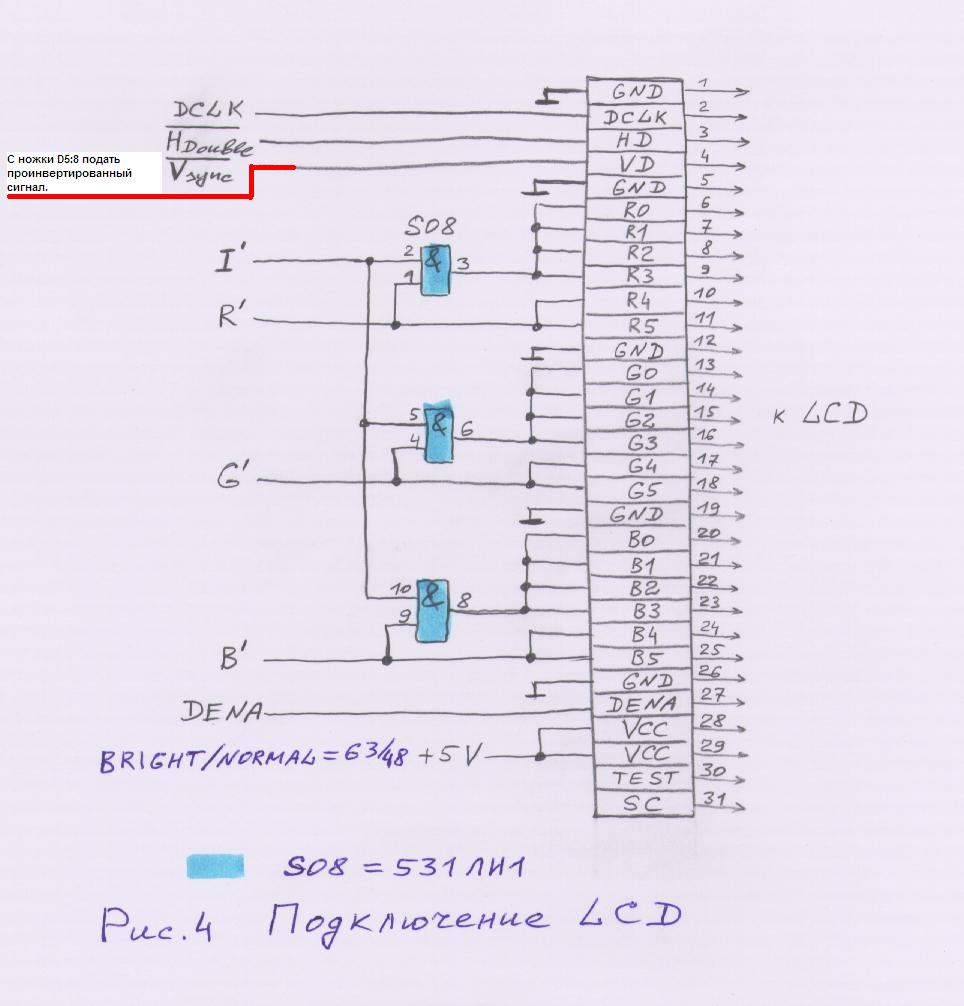 DCLK
HDouble
С ножки D5:8 подать
проинвертированный
сигнал.
Vsync
S08
I'
2
&
3
1
R'
5
&
6
4
G'
10
&
8
9
B'
DENA
BRIGHT/NORMAL=63/48 +5V
GND 1
DCLK 2
HD 3
VD 4
GND 5
R0 6
R1 7
R2 8
R3 9
R4 10
R5 11
GND 12
G0 13
G1 14
G2 15
G3 16
G4 17
G5 18
GND 19
B0 20
B1 21
B2 22
B3 23
B4 24
B5 25
GND 26
DENA 27
VCC 28
VCC 29
TEST 30
SC 31
к LCD
S08 = 531ЛИ1
Рис.4 Подключение LCD